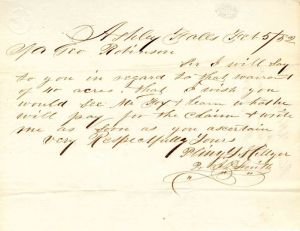 Ashley Falls Feb 5/52
Geo Robinson
Sir I will say
to you in regard to that warrant
of 40 acres. that I wish you
would see Mr Fox & learn what he
will pay for the claim & write
me as soon as you ascertain
Very Respectfully Yours
Pliny Hillyer